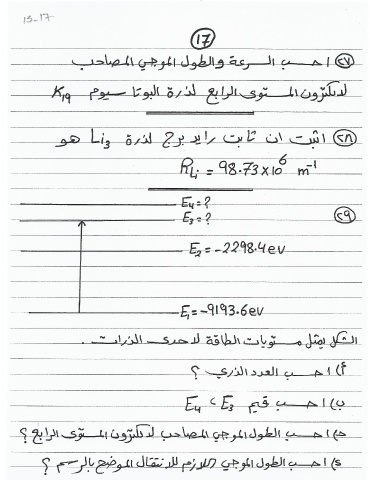 15-17
(17)
(٢٧) احسب السرعة والطول الموجي المصاحب
لالكترون المستوى الرابع لذرة البوتاسيوم K19
(٢٨) اثبت ان ثابت رايدبرج لذرة Li3 هو
RLi = 98.73×10⁶ m⁻¹
(٢٩)
E4=?
E3=?
E2=-2298.4ev
E1=-9193.6ev
الشكل يمثل مستويات الطاقة لاحدى الذرات .
أ) احسب العدد الذري ؟
ب) احسب قيم E3 ، E4
ج) احسب الطول الموجي المصاحب لالكترون المستوى الرابع ؟
د) احسب الطول الموجي اللازم للانتقال الموضح بالرسم ؟